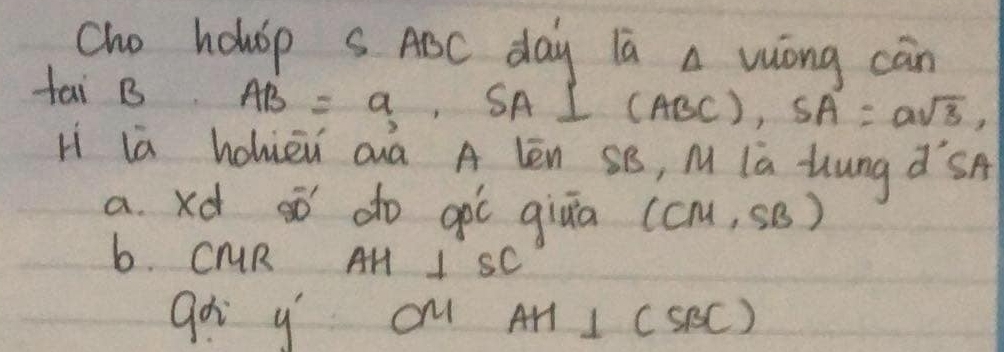 Cho hchóp S ABC đáy là Δ vuông cân
tại B. AB = a, SA ⊥ (ABC), SA = a√3,
H là hchiếu của A lên SB, M là trung đ' SA
a. xđ số đo góc giữa (CM, SB)
b. CMR AH ⊥ SC
gợi ý CM AH ⊥ (SBC)